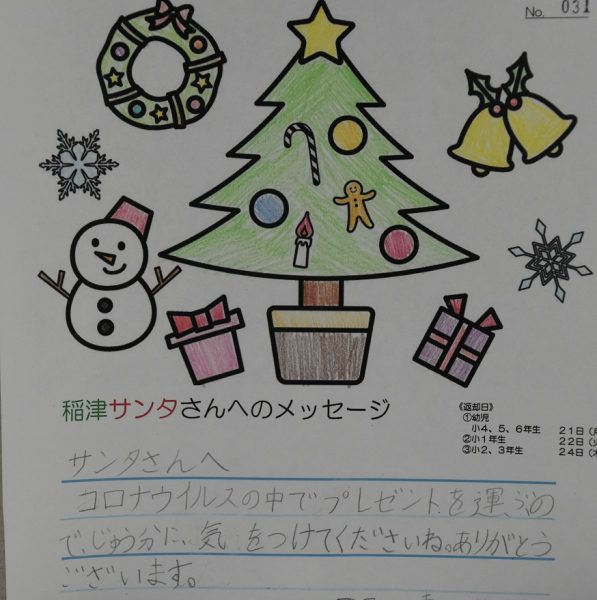 No. 031
稲津サンタさんへのメッセージ
《返却日》
①幼児
小4、5、6年生 21日(月
②小1年生 22日(火
③小2、3年生 24日(木
サンタさんへ
コロナウイルスの中でプレゼントを運ぶの
で、じゅう分に、気をつけてくださいね。ありがとう
ございます。